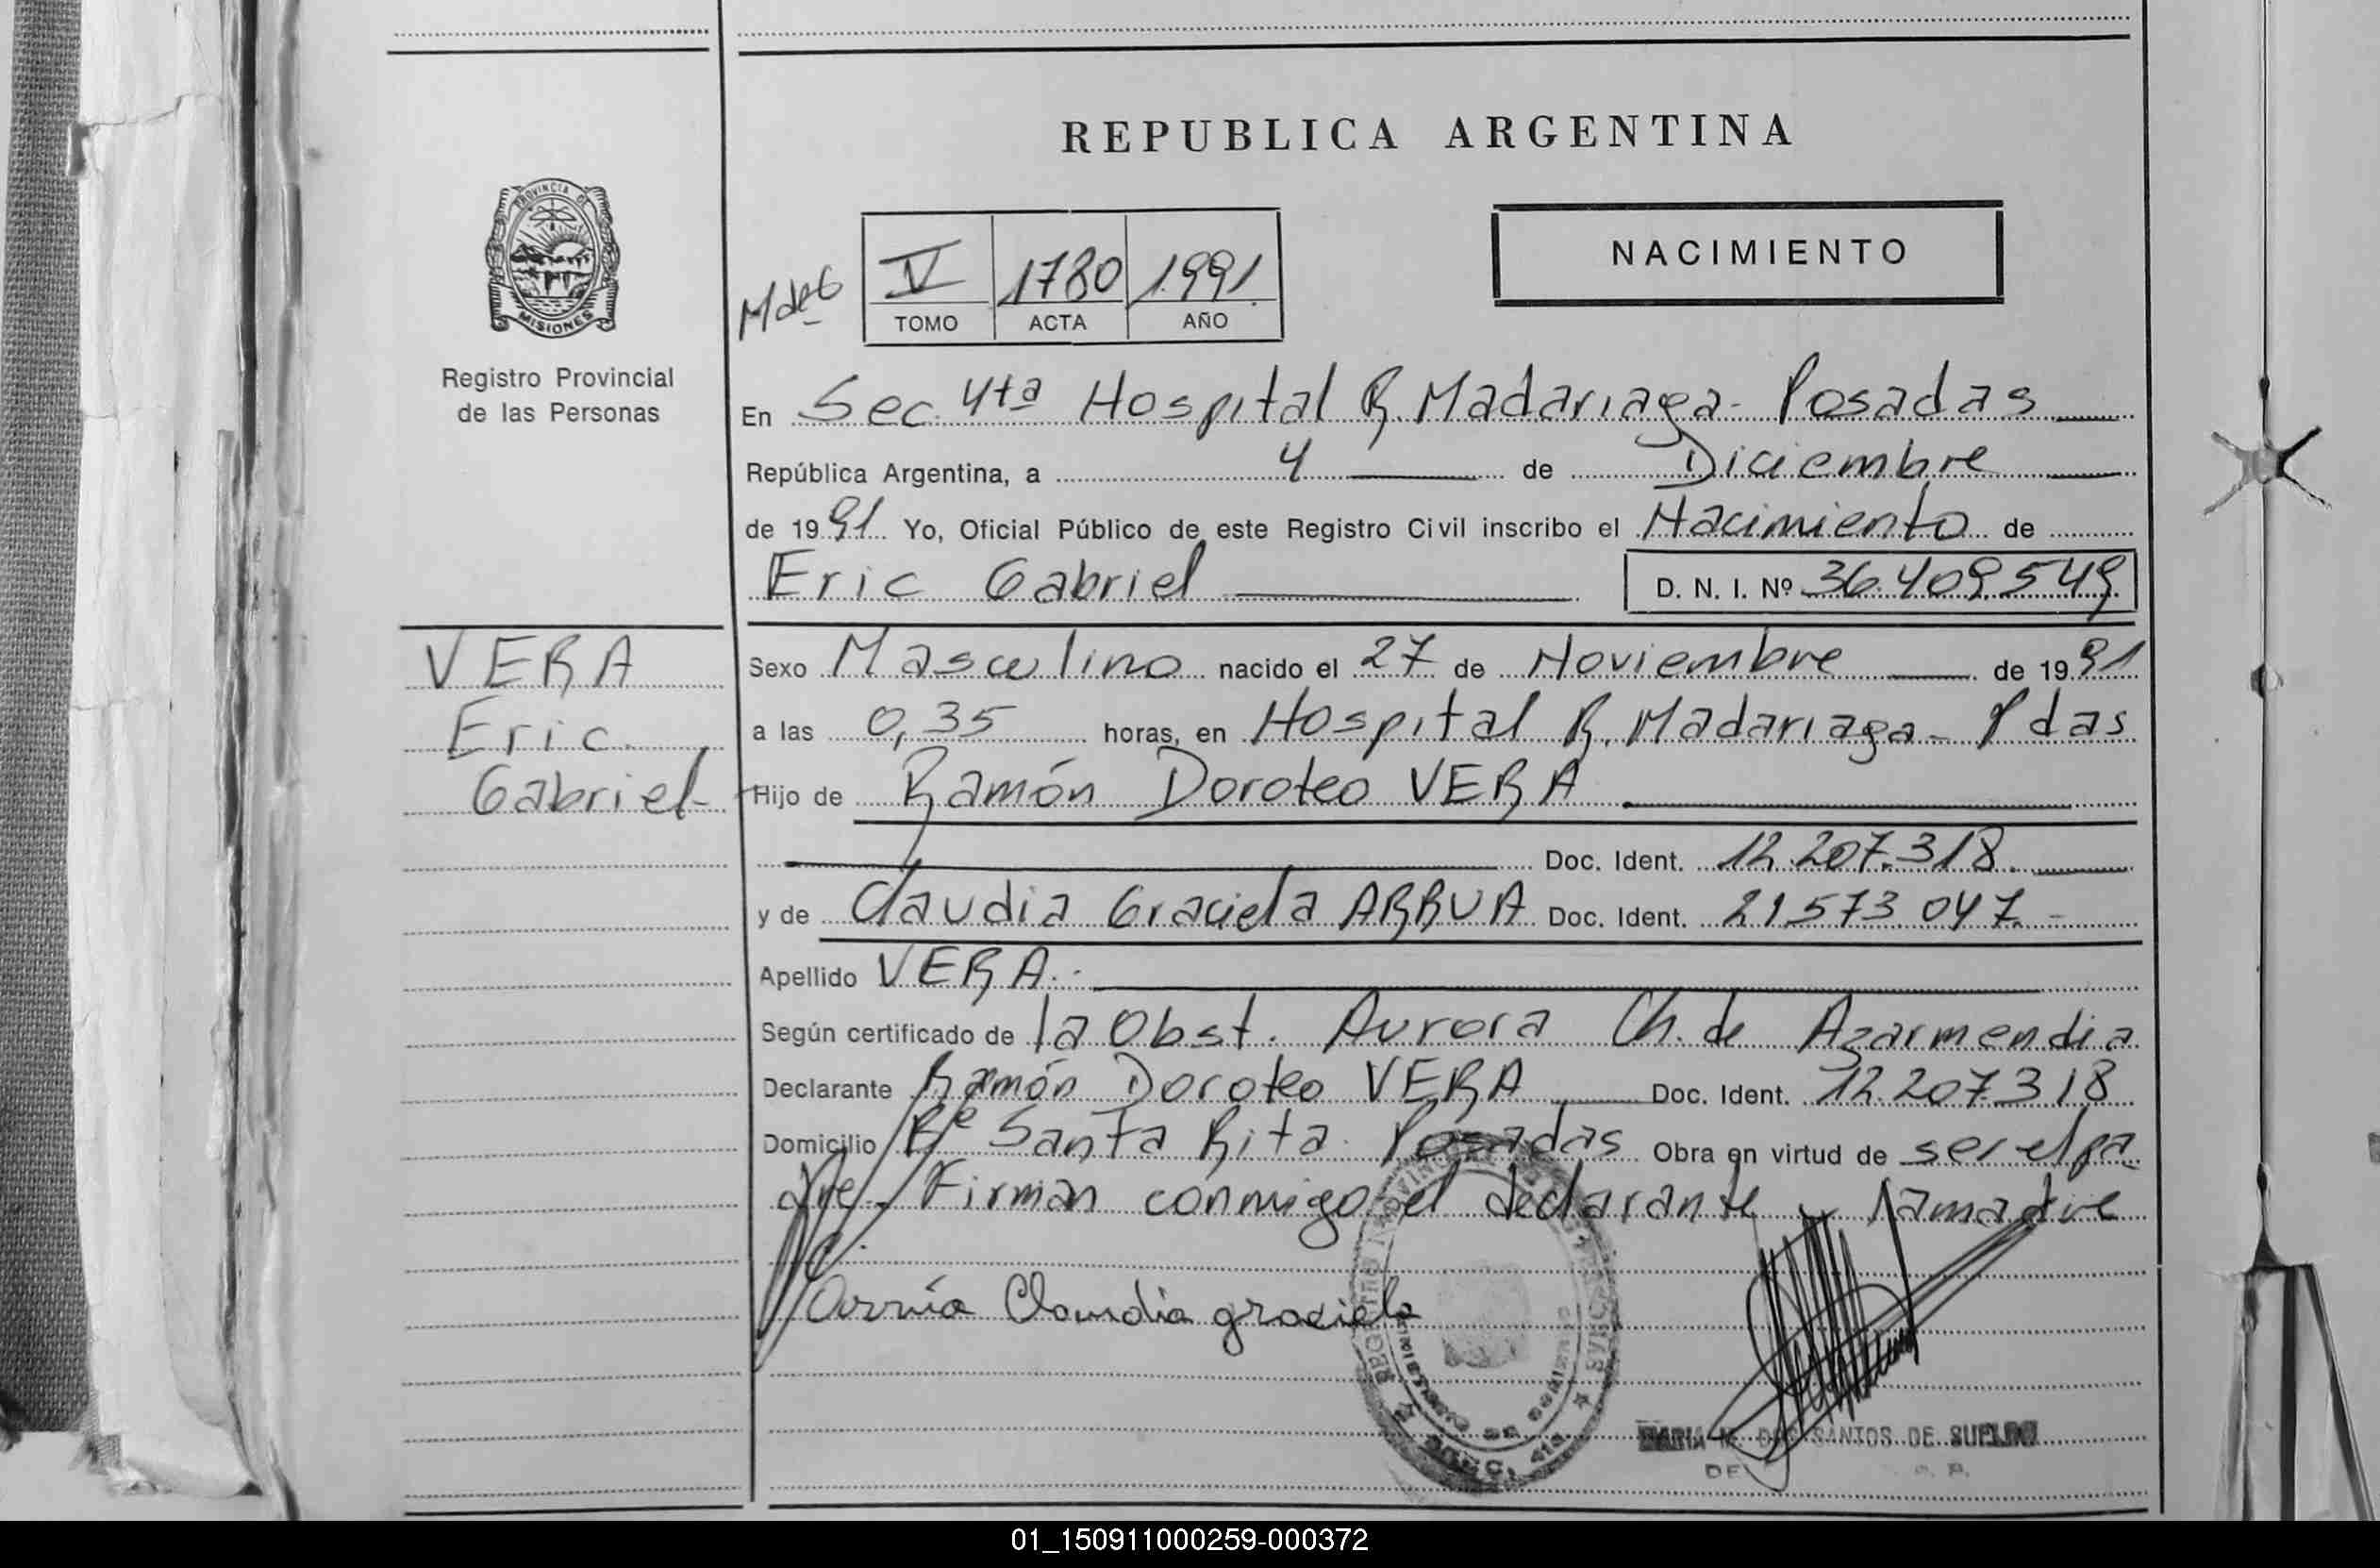 REPUBLICA ARGENTINA
PROVINCIA DE
MISIONES
Registro Provincial
de las Personas
NACIMIENTO
V 1780 1.991.
TOMO ACTA AÑO
En Sec. 4ta Hospital R. Madariaga - Posadas
República Argentina, a 4 de Diciembre
de 1991 Yo, Oficial Público de este Registro Civil inscribo el Nacimiento de
Eric Gabriel D. N. I. Nº 36.409.549
VERA
Eric
Gabriel-
Sexo Masculino nacido el 27 de Noviembre de 1991
a las 0,35 horas, en Hospital R. Madariaga - Pdas
Hijo de Ramón Doroteo VERA
Doc. Ident. 12.207.318.
y de Claudia Graciela ARRUA Doc. Ident. 21.573.047.-
Apellido VERA.-
Según certificado de la Obst. Aurora Ch. de Azarmendia
Declarante Ramón Doroteo VERA Doc. Ident. 12.207.318
Domicilio Bº Santa Rita Posadas Obra en virtud de ser el pa
dre. Firman conmigo el declarante y la madre
Arrúa Claudia graciela
SANTOS DE SUELDO
01_150911000259-000372